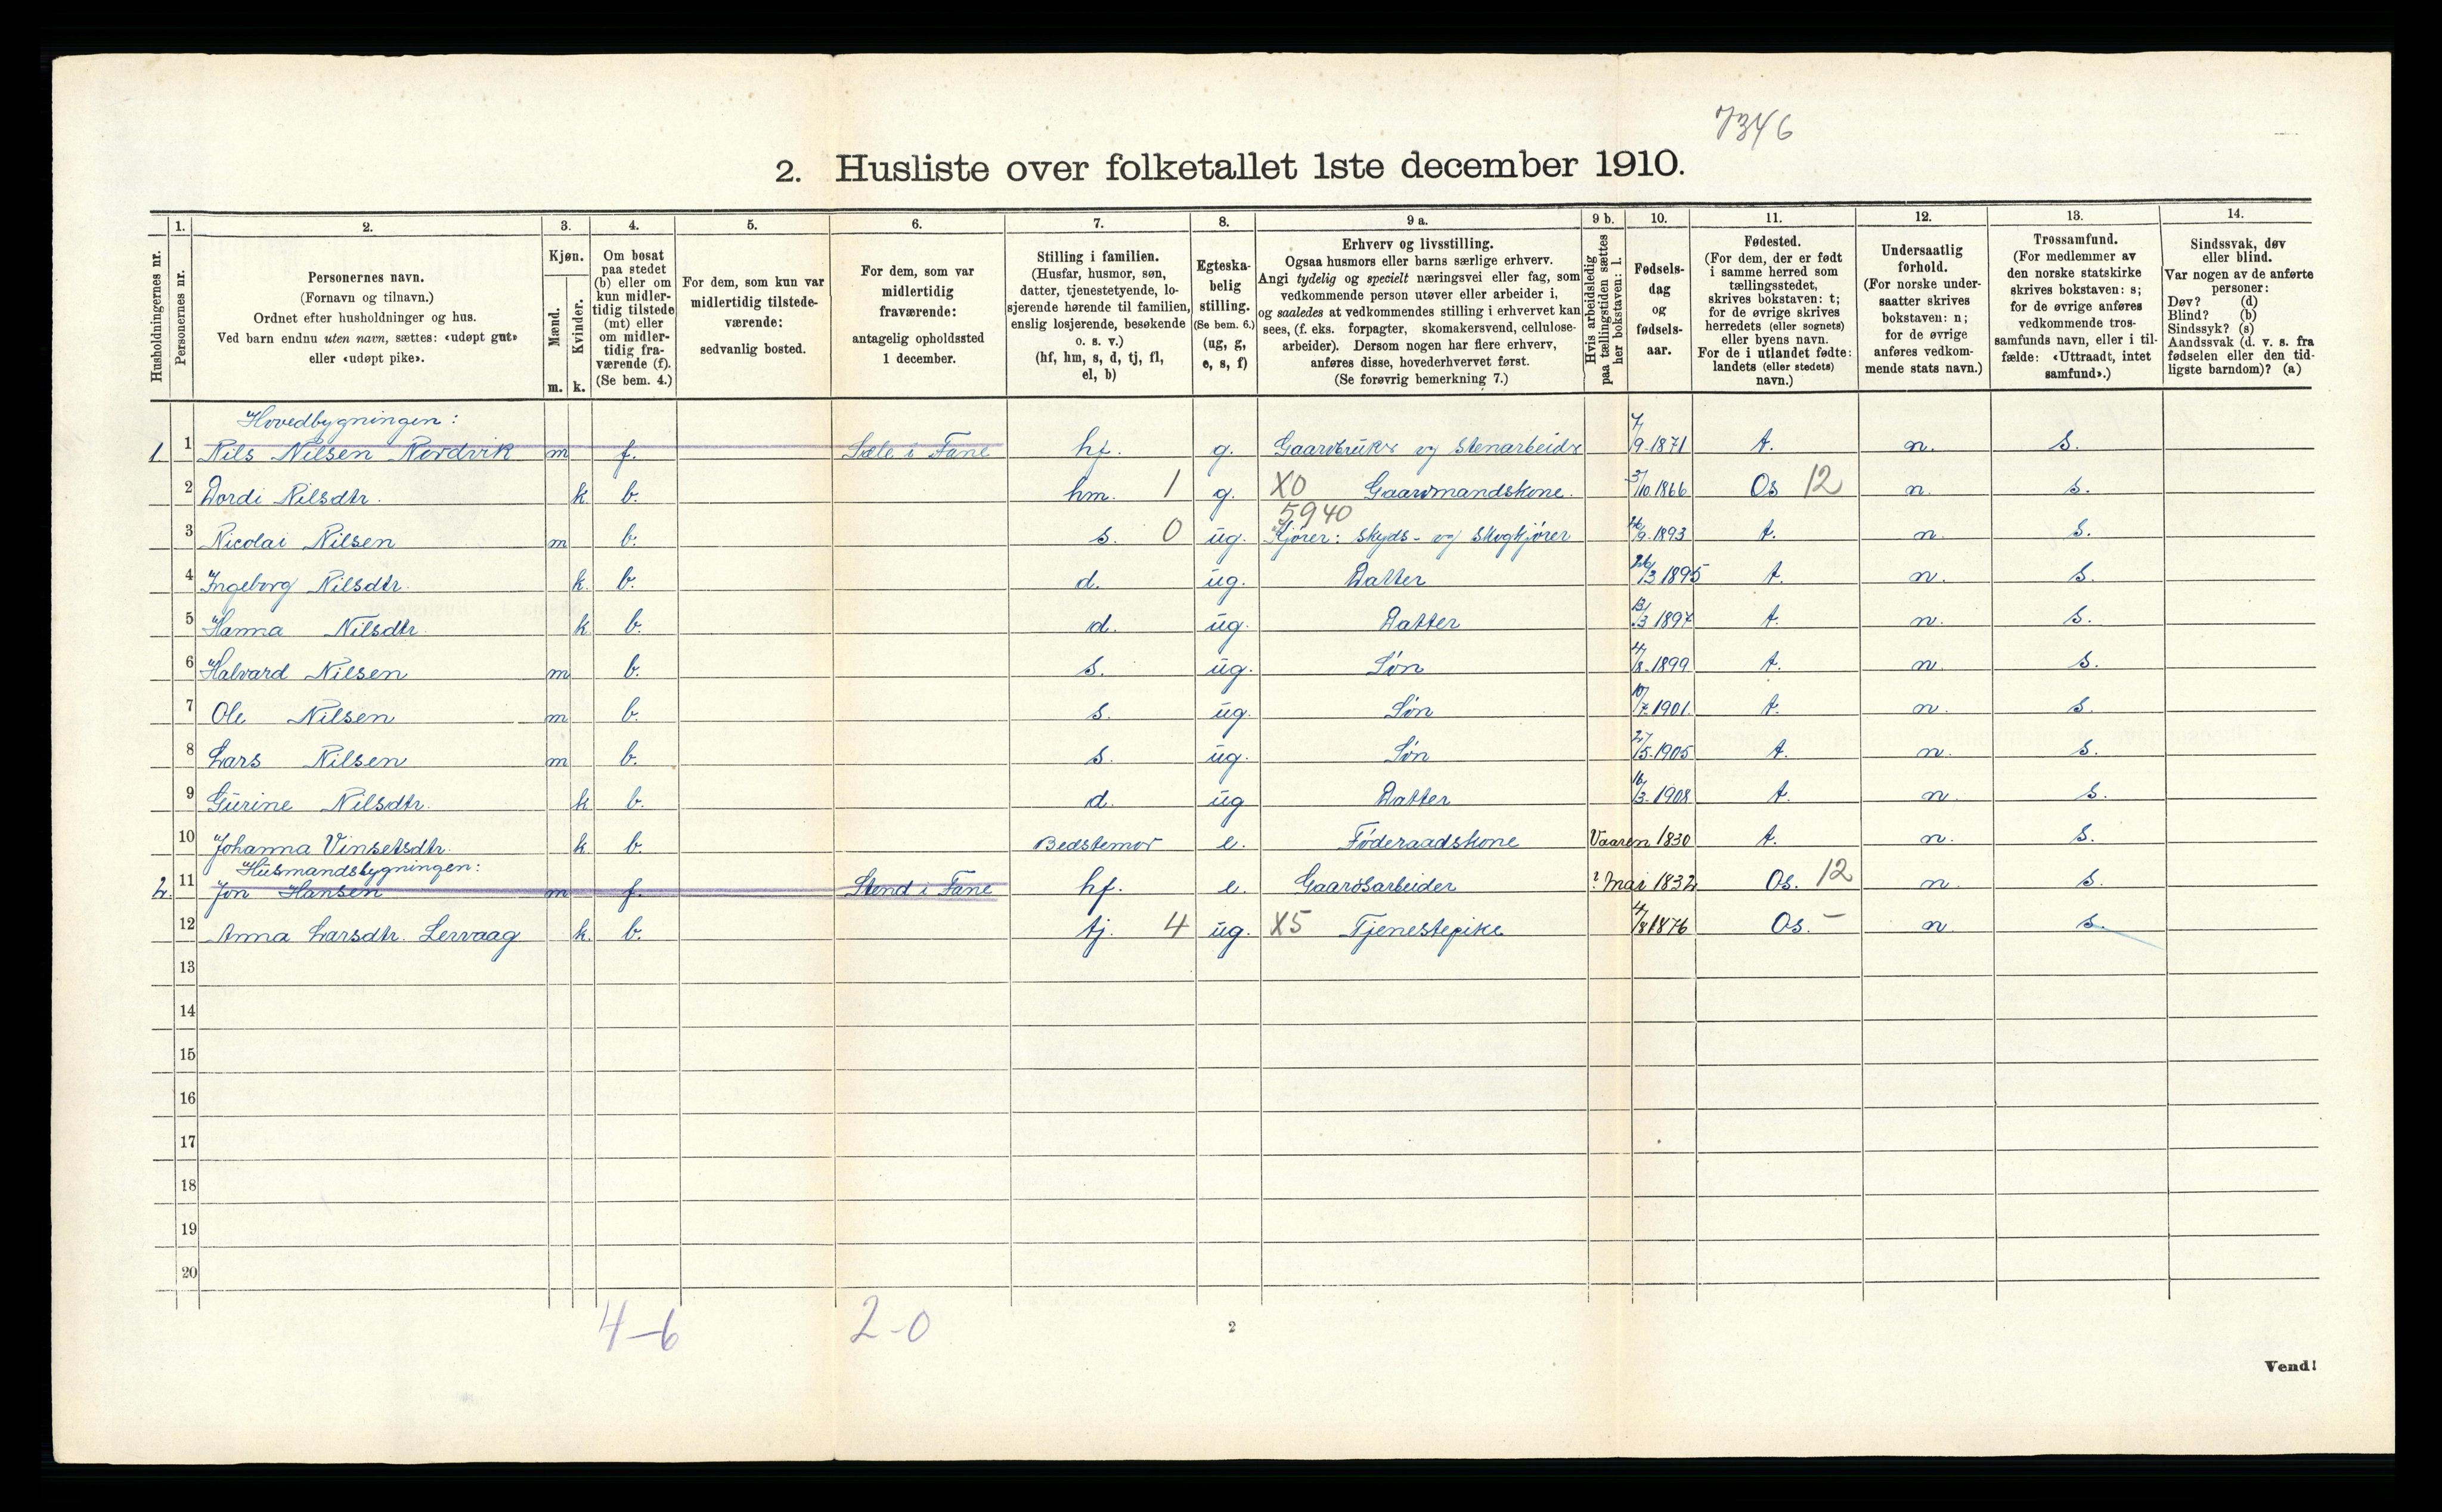 7346
2. Husliste over folketallet 1ste december 1910.
Husholdningernes nr.
1. Personernes nr.
2. Personernes navn.
(Fornavn og tilnavn.)
Ordnet efter husholdninger og hus.
Ved barn endnu uten navn, sættes: «udøpt gut»
eller «udøpt pike».
3. Kjøn.
Mænd. m.
Kvinder. k.
4. Om bosat
paa stedet
(b) eller om
kun midler-
tidig tilstede
(mt) eller
om midler-
tidig fra-
værende (f).
(Se bem. 4.)
5. For dem, som kun var
midlertidig tilstede-
værende:
sedvanlig bosted.
6. For dem, som var
midlertidig
fraværende:
antagelig opholdssted
1 december.
7. Stilling i familien.
(Husfar, husmor, søn,
datter, tjenestetyende, lo-
sjerende hørende til familien,
enslig losjerende, besøkende
o. s. v.)
(hf, hm, s, d, tj, fl,
el, b)
8. Egteska-
belig
stilling.
(Se bem. 6.)
(ug, g,
e, s, f)
9 a. Erhverv og livsstilling.
Ogsaa husmors eller barns særlige erhverv.
Angi tydelig og specielt næringsvei eller fag, som
vedkommende person utøver eller arbeider i,
og saaledes at vedkommendes stilling i erhvervet kan
sees, (f. eks. forpagter, skomakersvend, cellulose-
arbeider). Dersom nogen har flere erhverv,
anføres disse, hovederhvervet først.
(Se forøvrig bemerkning 7.)
9 b. Hvis arbeidsledig
paa tællingstiden sættes
her bokstaven: l.
10. Fødsels-
dag
og
fødsels-
aar.
11. Fødested.
(For dem, der er født
i samme herred som
tællingsstedet,
skrives bokstaven: t;
for de øvrige skrives
herredets (eller sognets)
eller byens navn.
For de i utlandet fødte:
landets (eller stedets)
navn.)
12. Undersaatlig
forhold.
(For norske under-
saatter skrives
bokstaven: n;
for de øvrige
anføres vedkom-
mende stats navn.)
13. Trossamfund.
(For medlemmer av
den norske statskirke
skrives bokstaven: s;
for de øvrige anføres
vedkommende tros-
samfunds navn, eller i til-
fælde: «Uttraadt, intet
samfund».)
14. Sindssvak, døv
eller blind.
Var nogen av de anførte
personer:
Døv? (d)
Blind? (b)
Sindssyk? (s)
Aandssvak (d. v. s. fra
fødselen eller den tid-
ligste barndom)? (a)
Hovedbygningen:
1 1 Nils Nilsen Nordvik m f. Sæle i Fane hf. g. Gaardbruker og Stenarbeider 7/9 1871 t. n. s.
2 Dordi Nilsdtr. k. b. hm. 1 g. X0 Gaardmandskone. 3/10 1866 Os 12 n. s.
5940
3 Nicolai Nilsen m b. s. 0 ug. Kjører: Skyds- og Skogkjører 26/9 1893 t. n. s.
4 Ingeborg Nilsdtr. k. b. d. ug. Datter 26/3 1895 t. n. s.
5 Hanna Nilsdtr. k b. d. ug. Datter 13/3 1897 t. n. s.
6 Halvard Nilsen m b. s. ug. Søn 4/8 1899 t. n. s.
7 Ole Nilsen m b. s. ug. Søn 10/7 1901. t. n. s.
8 Lars Nilsen m b. s. ug. Søn 27/5 1905 t. n. s.
9 Gurine Nilsdtr. k b. d. ug Datter 16/3 1908 t. n. s.
10 Johanna Vinsetsdtr. k. b. Bedstemor e. Føderaadskone Vaaren 1830 t. n. s.
Husmandsbygningen:
2. 11 Jon Hansen m f. Stend i Fane hf. e. Gaardsarbeider ? Mai 1832 Os. 12 n. s.
12 Anna Larsdtr. Lervaag k. b. tj. 4 ug. X5 Tjenestepike 4/8 1876 Os. – n s.
13
14
15
16
17
18
19
20
4-6 2-0
2
Vend!